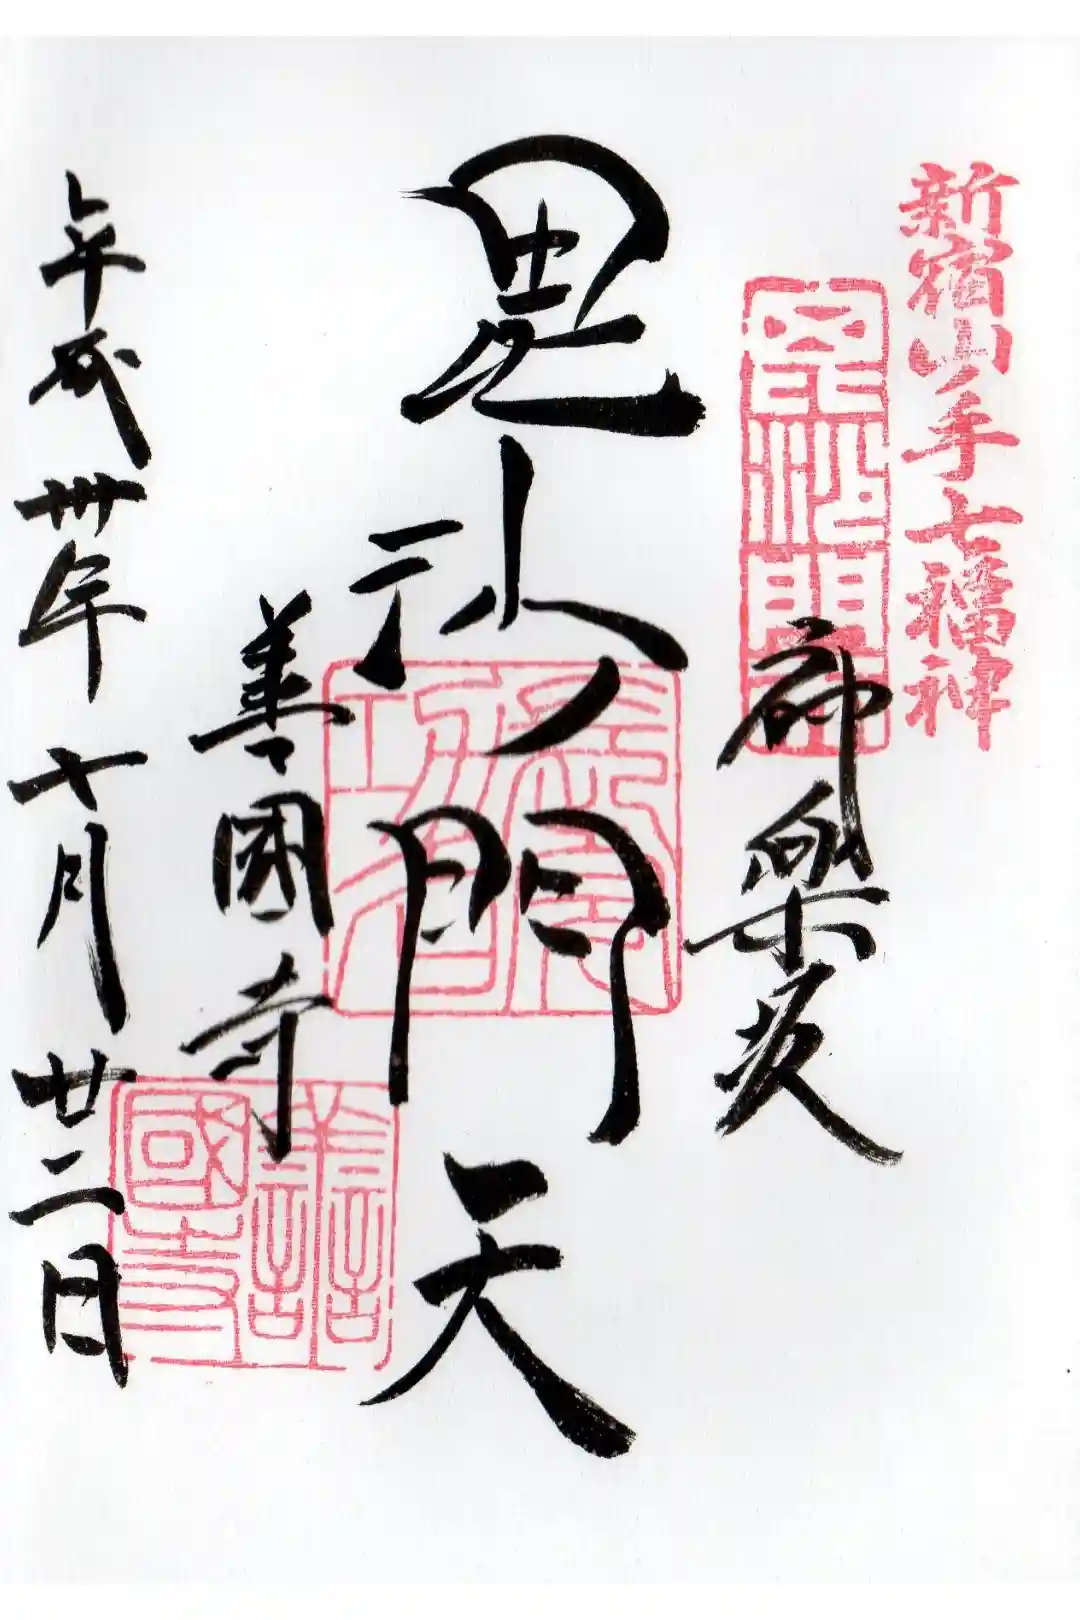 新宿山ノ手七福神
毘沙門天
神樂坂
毘沙門天
善國寺
善國寺
平成卅年十月廿二日